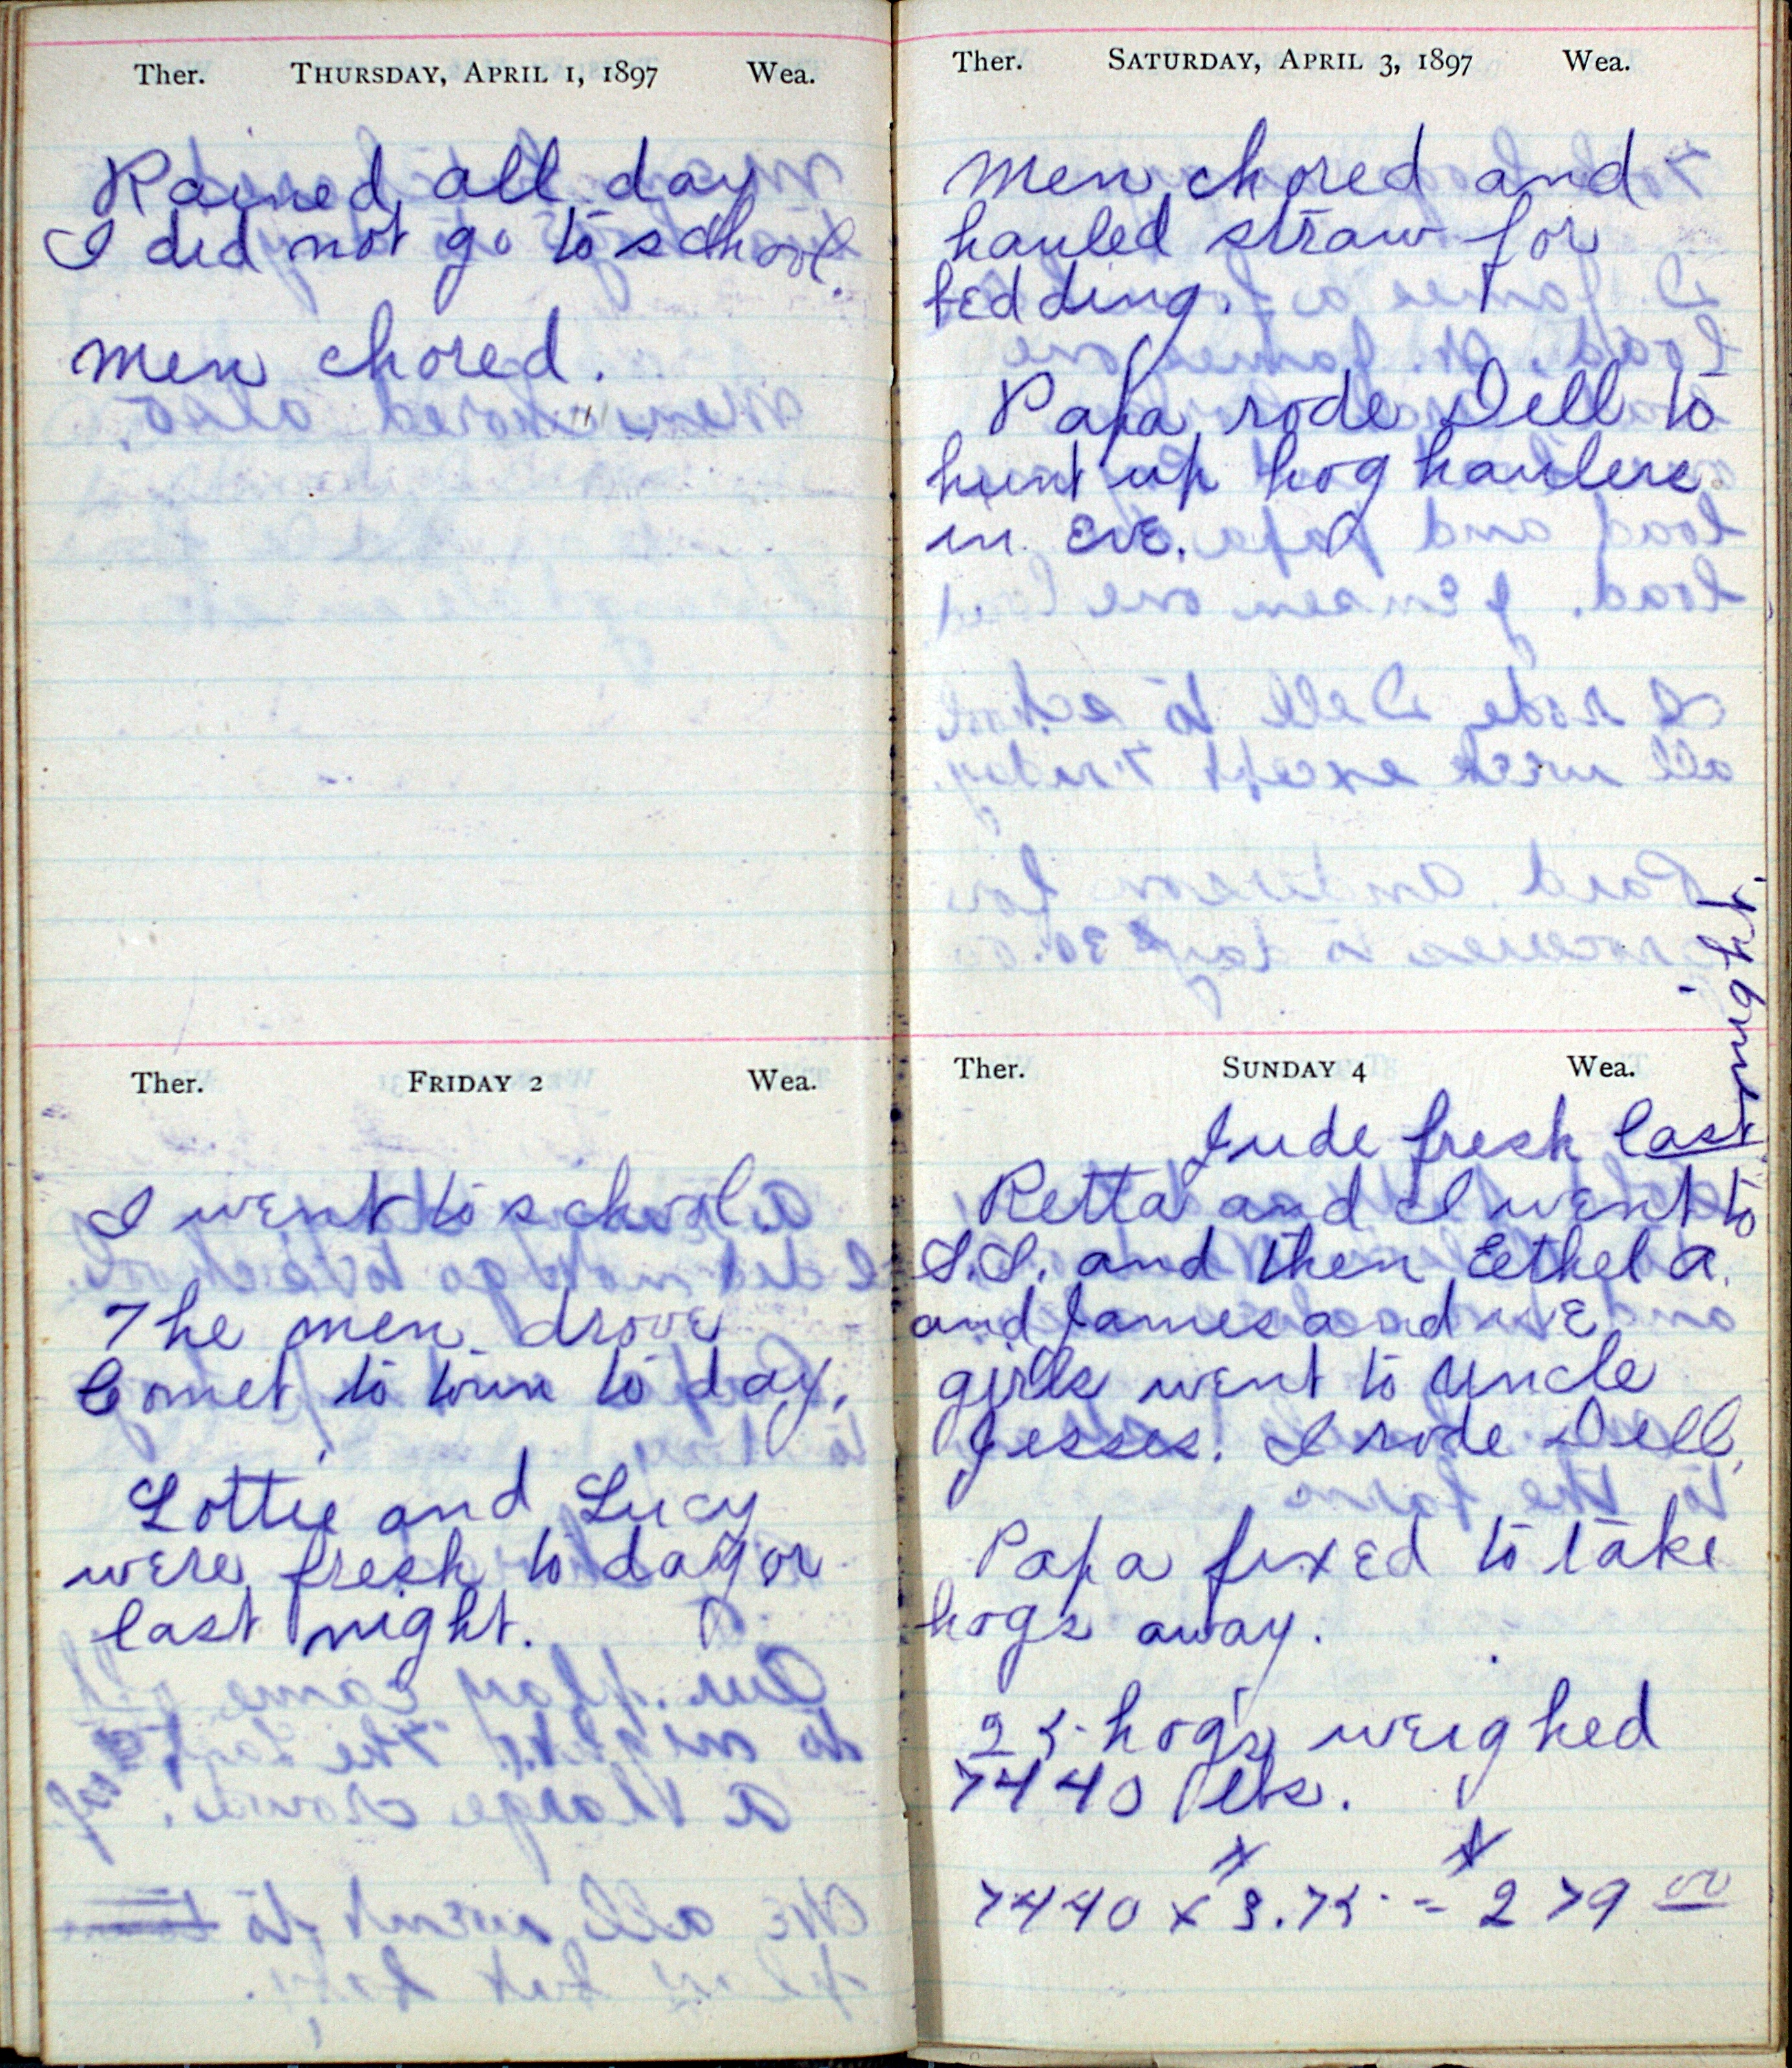 Ther. THURSDAY, APRIL 1, 1897 Wea.
Rained all day
I did not go to school.
Men chored.
Ther. FRIDAY 2 Wea.
I went to school.
The men drove
Comet to town to day.
Lottie and Lucy
were fresh to day or
last night.
Ther. SATURDAY, APRIL 3, 1897 Wea.
Men chored and
hauled straw for
bedding.
Papa rode Dell to
hunt up hog haulers
in eve.
Ther. SUNDAY 4 Wea.
Jude fresh last night.
Retta and I went to
S.S. and then Eethel A.
and James and we
girls went to Uncle
Jesses. I rode Dell.
Papa fixed to take
hogs away.
25 hogs weighed
7440 lbs.
7440 x 3.75 = 279 00